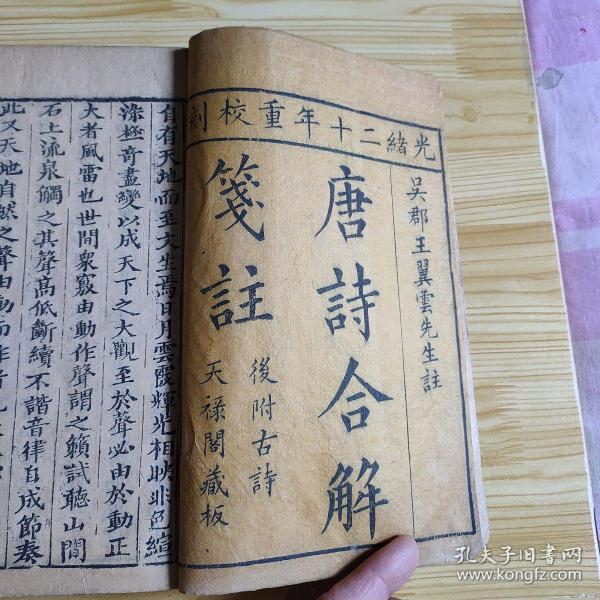 光緒二十年重校刻
吳郡王翼雲先生註
唐詩合解
箋註
後附古詩
天祿閣藏板
自有天地而至文生焉日月雲霞輝光相映非色絢
染極奇盡變以成天下之大觀至於聲必由於動正
大者風雷也世間衆竅由動作聲謂之籟試聽山間
石上流泉觸之其聲高低斷續不諧音律自成節奏
此又天地自然之聲由動而作者
孔夫子旧书网
www.kongfz.com